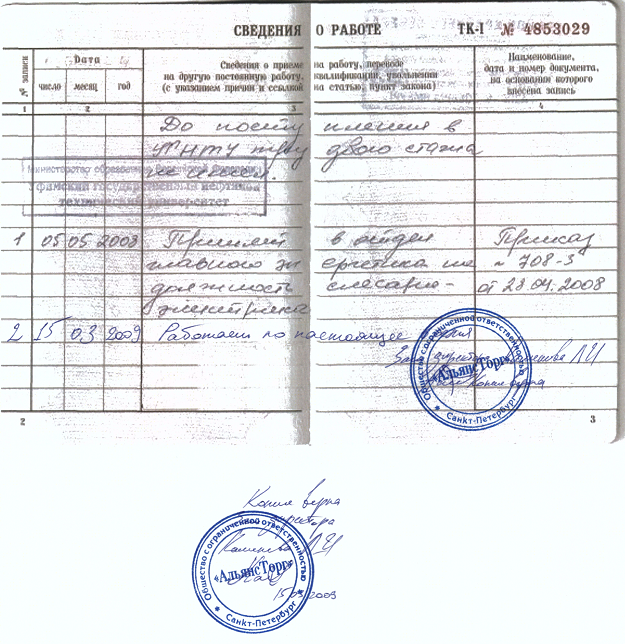 СВЕДЕНИЯ О РАБОТЕ ТК-I № 4853029
№ записи
Дата
число месяц год
Сведения о приеме на работу, переводе
на другую постоянную работу, квалификации, увольнении
(с указанием причин и ссылкой на статью, пункт закона)
Наименование,
дата и номер документа,
на основании которого
внесена запись
1 2 3 4
До поступления в
УГНТУ трудового стажа
не имеет.
Министерство образования
Уфимский государственный нефтяной
технический университет
1 05 05 2008 Принят в отдел Приказ
главного энергетика на № 708-3
должность слесаря- от 28.04.2008
электрика
2 15 03 2009 Работает по настоящее время
Зам директора Каменева Л И
Копия верна
Общество с ограниченной ответственностью
«АльянсТорг»
Санкт-Петербург
2 3
Копия верна
директора
Каменева Л И
Общество с ограниченной ответственностью
«АльянсТорг»
15 03 2009
Санкт-Петербург